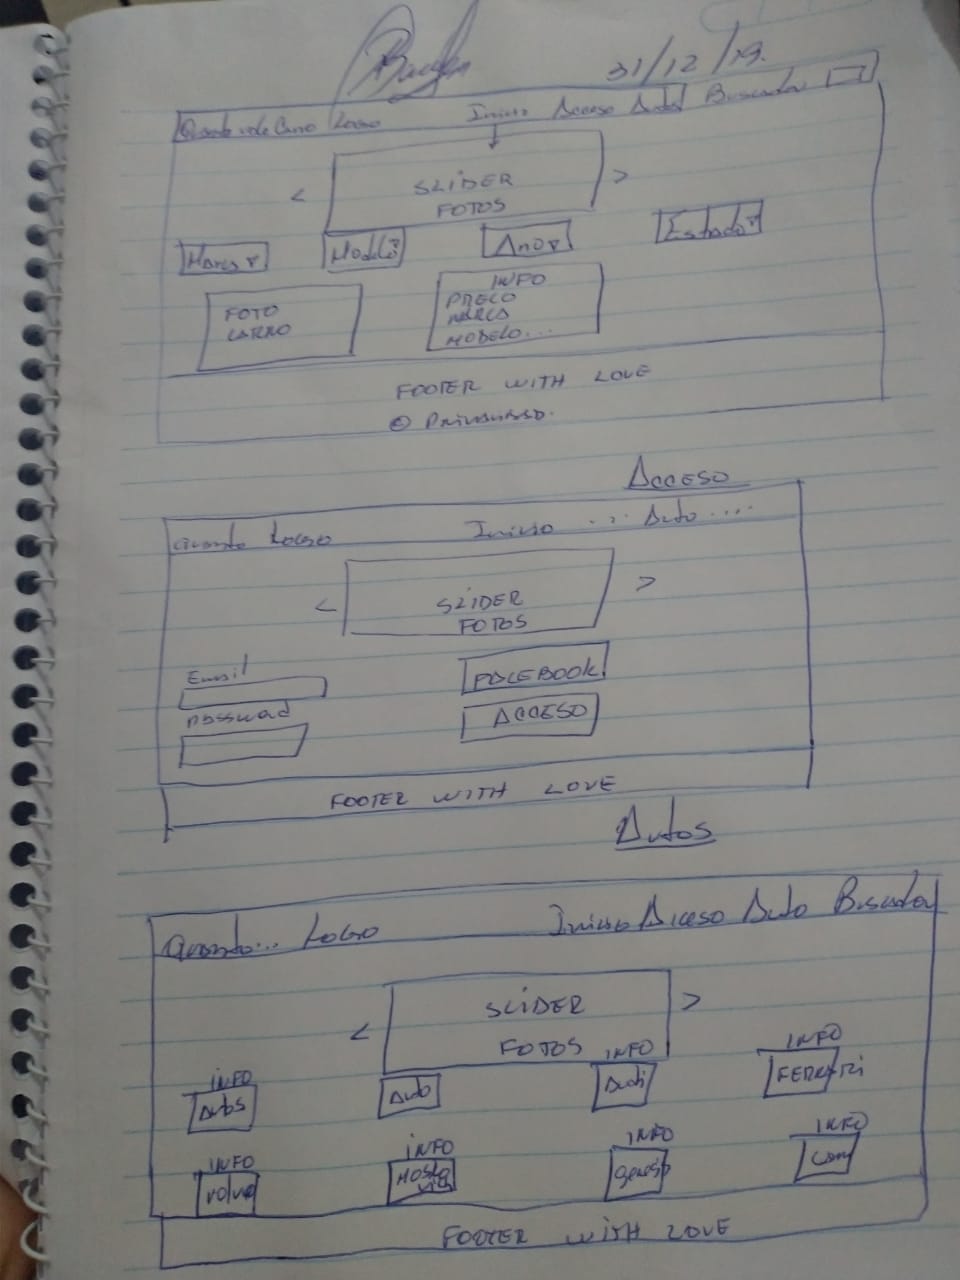 31/12/19.
Quanto vale Carro Logo Inicio Acceso Auto Buscador
< SLIDER >
FOTOS
Marca Modelo Ano Estado
FOTO
CARRO
INFO
PRECO
MARCA
MODELO...
FOOTER WITH LOVE
ACCESO
Quanto Logo Inicio ... Auto ....
< SLIDER >
FOTOS
Email
Password
FACEBOOK
ACCESO
FOOTER WITH LOVE
Autos
Quanto... Logo Inicio Acceso Auto Buscador
< SLIDER >
FOTOS
INFO INFO INFO
Autos Auto Audi FERRARI
INFO INFO INFO INFO
Volvo
FOOTER WITH LOVE